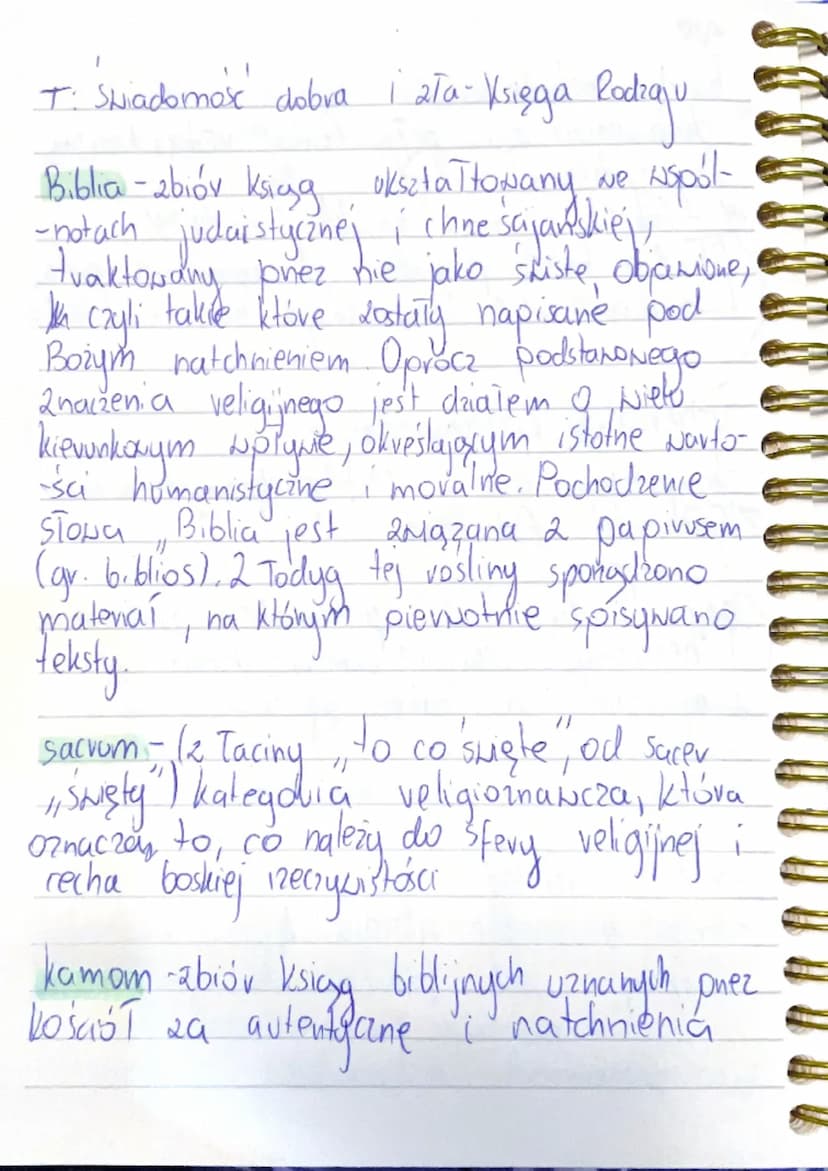 T: Świadomość dobra i zła - Księga Rodzaju
Biblia - zbiór ksiąg ukształtowany we wspól-
-notach judaistycznej i chrześcijańskiej,
traktowany przez nie jako święte, objawione,
czyli takie które zostały napisane pod
Bożym natchnieniem. Oprócz podstawowego
znaczenia religijnego jest działem o wielu
kierunkowym wpływie, określającym istotne warto-
-ści humanistyczne i moralne. Pochodzenie
słowa „Biblia jest związana z papirusem
(gr. biblios). Z łodyg tej rośliny sporządzono
materiał, na którym pierwotnie spisywano
teksty.
sacrum - (z łaciny „to co święte", od sacer
„święty") kategoria religioznawcza, która
oznacza to, co należy do sfery religijnej i
cecha boskiej rzeczywistości
kamom - zbiór ksiąg biblijnych uznanych przez
kościół za autentyczne i natchnienia